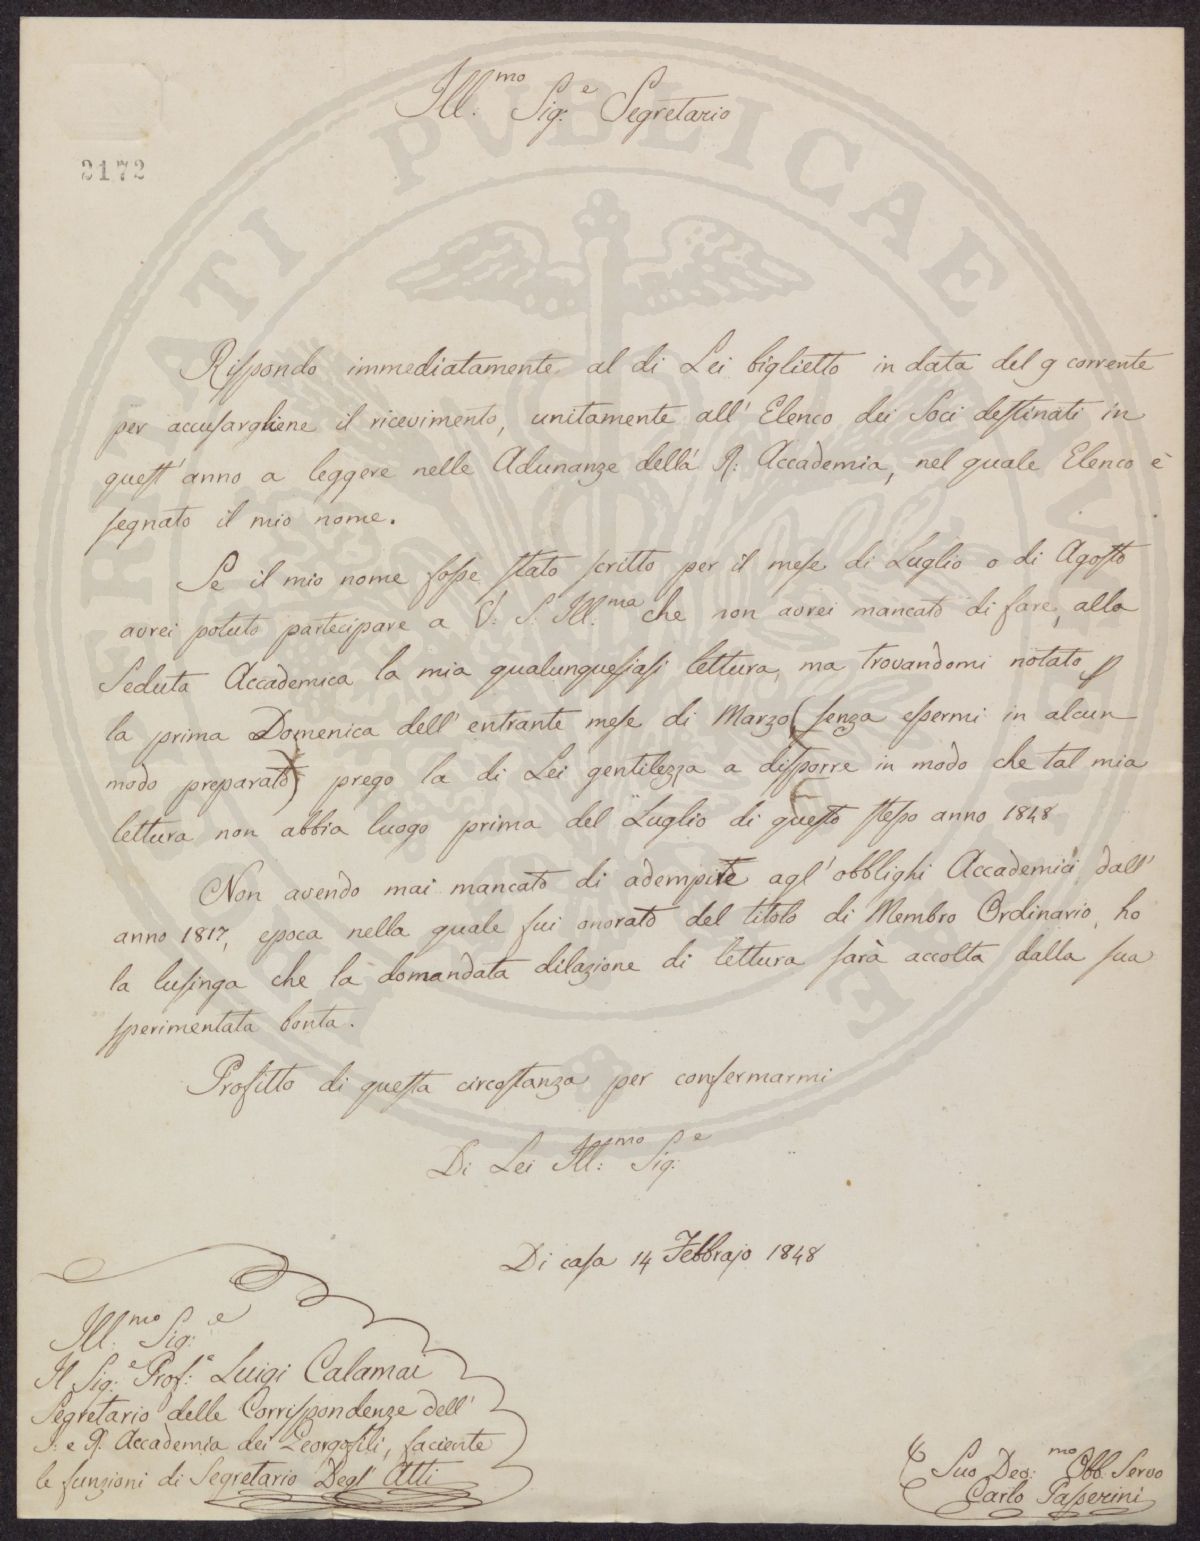 Ill.mo Sig.e Segretario
2172
Rispondo immediatamente al di Lei biglietto in data del 9 corrente
per accusargliene il ricevimento, unitamente all' Elenco dei Soci destinati in
quest' anno a leggere nelle Adunanze della R: Accademia, nel quale Elenco è
segnato il mio nome.
Se il mio nome fosse stato scritto per il mese di Luglio o di Agosto
avrei potuto partecipare a V: S. Ill:ma che non avrei mancato di fare, alla
Seduta Accademica la mia qualunquesiasi lettura, ma trovandomi notato p
la prima Domenica dell' entrante mese di Marzo (senza essermi in alcun
modo preparato) prego la di Lei gentilezza a disporre in modo che tal mia
lettura non abbia luogo prima del Luglio di questo stesso anno 1848
Non avendo mai mancato di adempire agl' obblighi Accademici dall'
anno 1817, epoca nella quale fui onorato del titolo di Membro Ordinario, ho
la lusinga che la domandata dilazione di lettura sarà accolta dalla sua
sperimentata bonta.
Profitto di questa circostanza per confermarmi
Di Lei Ill:mo Sig:e
Di casa 14 Febbrajo 1848
Ill:mo Sig:e
Il Sig:e Prof:e Luigi Calamai
Segretario delle Corrispondenze dell'
I. e R. Accademia dei Georgofili, faciente
le funzioni di Segretario Degl' Atti
Suo Dev:mo Obb. Servo
Carlo Passerini
PROSPERITATI PVBLICAE AVGENDAE